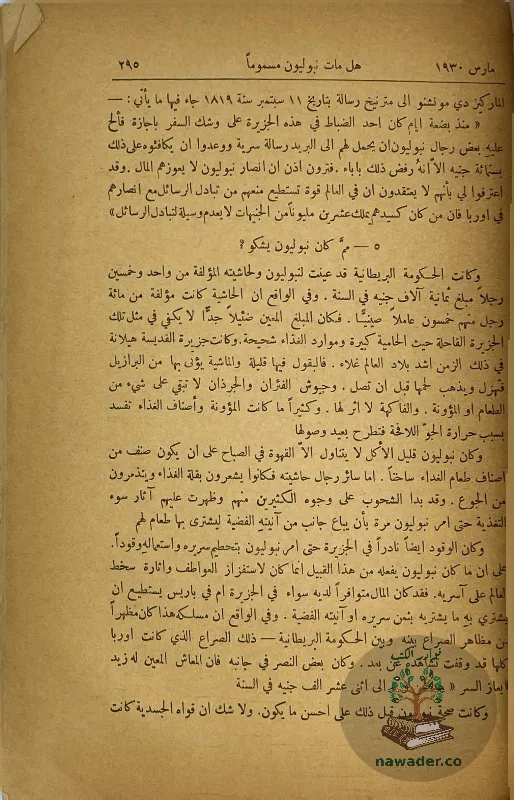 مارس ١٩٣٠ هل مات نبوليون مسموماً ٢٩٥
الماركيز دي مونشنو الى مترنيخ رسالة بتاريخ ١١ سبتمبر سنة ١٨١٩ جاء فيها ما يأتي : —
« منذ بضعة ايام كان احد الضباط في هذه الجزيرة على وشك السفر باجازة فألح
عليه بعض رجال نبوليون ان يحمل لهم الى البريد رسالة سرية ووعدوا ان يكافئوه على ذلك
بستمائة جنيه الاّ انهُ رفض ذلك باباء . فترون اذن ان انصار نبوليون لا يعوزهم المال . وقد
اعترفوا لي بأنهم لا يعتقدون ان في العالم قوة تستطيع منعهم من تبادل الرسائل مع انصارهم
في اوربا فان من كان كسيدهم يملك عشرين مليوناً من الجنيهات لا يعدم وسيلة لتبادل الرسائل »
٥ — ممَّ كان نبوليون يشكو ؟
وكانت الحكومة البريطانية قد عينت لنبوليون ولحاشيته المؤلفة من واحد وخمسين
رجلاً مبلغ ثمانية آلاف جنيه في السنة . وفي الواقع ان الحاشية كانت مؤلفة من مائة
رجل منهم خمسون عاملاً صينيًّا . فكان المبلغ المعين ضئيلاً جدًّا لا يكفي في مثل تلك
الجزيرة القاحلة حيث الحامية كبيرة وموارد الغذاء شحيحة. وكانت جزيرة القديسة هيلانة
في ذلك الزمن اشد بلاد العالم غلاء . فالبقول فيها قليلة والماشية يؤتى بها من البرازيل
فتهزل ويذهب لحمها قبل ان تصل . وجيوش الفئران والجرذان لا تبقي على شيء من
الطعام او المؤونة . والفاكهة لا اثر لها . وكثيراً ما كانت المؤونة وأصناف الغذاء تفسد
بسبب حرارة الجوّ اللافحة فتطرح بعيد وصولها
وكان نبوليون قليل الأكل لا يتناول الاّ القهوة في الصباح على ان يكون صنف من
اصناف طعام الغداء ساخناً . اما سائر رجال حاشيته فكانوا يشعرون بقلة الغذاء ويتذمرون
من الجوع . وقد بدا الشحوب على وجوه الكثيرين منهم وظهرت عليهم آثار سوء
التغذية حتى امر نبوليون مرة بأن يباع جانب من آنيته الفضية ليشترى بها طعام لهم
وكان الوقود ايضاً نادراً في الجزيرة حتى امر نبوليون بتحطيم سريره واستعماله وقوداً.
على ان ما كان نبوليون يفعله من هذا القبيل انما كان لاستفزاز العواطف واثارة سخط
العالم على آسريه. فقد كان المال متوافراً لديه سواء في الجزيرة ام في باريس يستطيع ان
يشتري به ما يشتريه بثمن سريره او آنيته الفضية . وفي الواقع ان مسلكه هذا كان مظهراً
من مظاهر الصراع بينه وبين الحكومة البريطانية — ذلك الصراع الذي كانت اوربا
كلها قد وقفت تشاهده عن بعد . وكان بعض النصر في جانبه فان المعاش المعين له زيد
بايعاز السر « الى اثنى عشر الف جنيه في السنة
وكانت صحة نبوليون قبل ذلك على احسن ما يكون. ولا شك ان قواه الجسدية كانت
نوادر الكتب
nawader.co